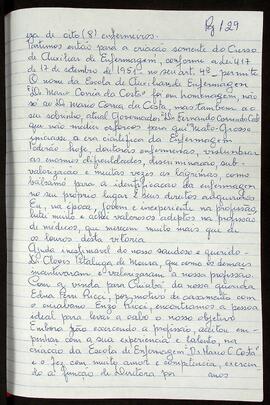 Pg 129
ga de oito (8) enfermeiros.
Partimos então para a criação somente do Curso
de Auxiliar de Enfermagem, conforme a de 417
de 17 de setembro de 1951 no seu art. 4º permite
O nome da Escola de Auxiliar de Enfermagem
"Dr. Mario Corrêa da Costa" foi em homenagem, não
só ao Dr. Mario Correa da Costa, mas também ao
seu sobrinho, atual Governador: Dr. Fernando Corrêa da Costa
que não mediu esforços para que Mato-Grosso
iniciasse a era científica da Enfermagem
Poderão hoje, doutoras enfermeiras, vislumbrarem
as enormes dificuldades, discriminação, sub-
valorização e muitas vezes as lágrimas, como
batismo para a identificação da enfermagem
no seu próprio lugar e seus direitos adquiridos
Eu, na época, jovem e inexperiente na profissão,
lutei muito e achei valorosos adeptos na profissão
de médicos, que merecem muito mais que eu
os louros desta vitória.
Ainda inesquecível do nosso saudoso e querido
Dr. Clovis Pitaluga de Moura, que como os demais
incentivaram e valorizaram a nossa profissão
Com a vinda para Cuiabá da nossa querida
Edna Perri Ricci, por motivo de casamento com
o cuiabano Enzo Ricci, encontramos a pessoa
ideal para levar a cabo o nosso objetivo
Embora não exercendo a profissão, aceitou em-
penhar com a sua experiência e talento, na
criação da Escola de Enfermagem "Dr. Mario C. Costa"
e o fez com muito amor e competência, exercen
do a função de Diretora por anos